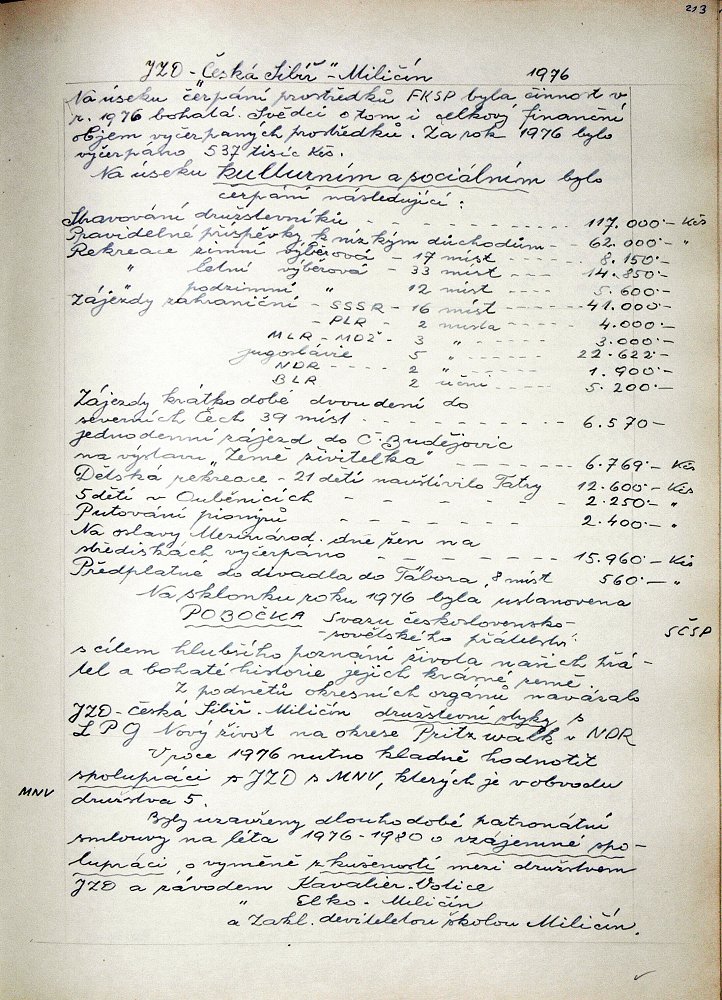 213
JZD - "Česká Sibiř" - Miličín 1976
Na úseku čerpání prostředků FKSP byla činnost v
r. 1976 bohatá. Svědčí o tom i celkový finanční
objem vyčerpaných prostředků. Za rok 1976 bylo
vyčerpáno 537 tisíc Kčs.
Na úseku kulturním a sociálním bylo
čerpání následující:
Stravování družstevníků - - - - - 117.000·- Kčs
Pravidelné příspěvky k nízkým důchodům - 62.000·- "
Rekreace zimní výběrová - 17 míst - - - - 8.150·-
" letní výběrová - 33 míst - - - - 14.850·-
" podzimní " 12 míst - - - - 5.600·-
Zájezdy zahraniční - SSSR - 16 míst - - - - 41.000·-
- PLR - 2 místa - - - - 4.000·-
MLR - MDŽ - 3 " - - - - 3.000·-
Jugoslávie 5 " - - - - 22.622·-
NDR - - - - 2 " - - - - 1.900·-
BLR 2 učni - - - - 5.200·-
Zájezdy krátkodobé dvoudení do
severních Čech 39 míst - - - - - 6.570-
jednodenní zájezd do Č. Budějovic
na výstavu "Země živitelka" - - - - - 6.769·- Kčs
Dětská rekreace - 21 dětí navštívilo Tatry 12.600·- Kčs
5 dětí v Ouběnicích - - - - - 2.250·- "
Putování pionýrů - - - - - 2.400·- "
Na oslavy Mezinárod. dne žen na
střediskách vyčerpáno - - - - - 15.960·- Kčs
Předplatné do divadla do Tábora, 8 míst 560·- "
Na sklonku roku 1976 byla ustanovena
POBOČKA Svazu československo-
-sovětského přátelství SČSP
s cílem hlubšího poznání života našich přá-
tel a bohaté historie jejich krásné země.
Z podnětů okresních orgánů navázalo
JZD - Česká Sibiř - Miličín družstevní styky s
LPG Nový život na okrese Pritzwalk v NDR
V roce 1976 nutno kladně hodnotit
spolupráci s JZD s MNV, kterých je v obvodu
MNV
družstva 5.
Byly uzavřeny dlouhodobé patronátní
smlouvy na léta 1976-1980 o vzájemné spo-
lupráci, o výměně zkušeností mezi družstvem
JZD a závodem Kavalier - Votice
" Elko - Miličín
a Zákl. devítiletou školou Miličín.